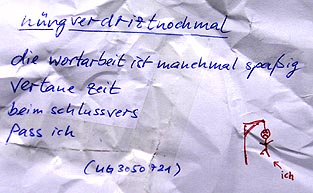 nürgverdriztnochmal
die wortarbeit ist manchmal spaßig
vertane zeit
beim schlussvers
pass ich
ich